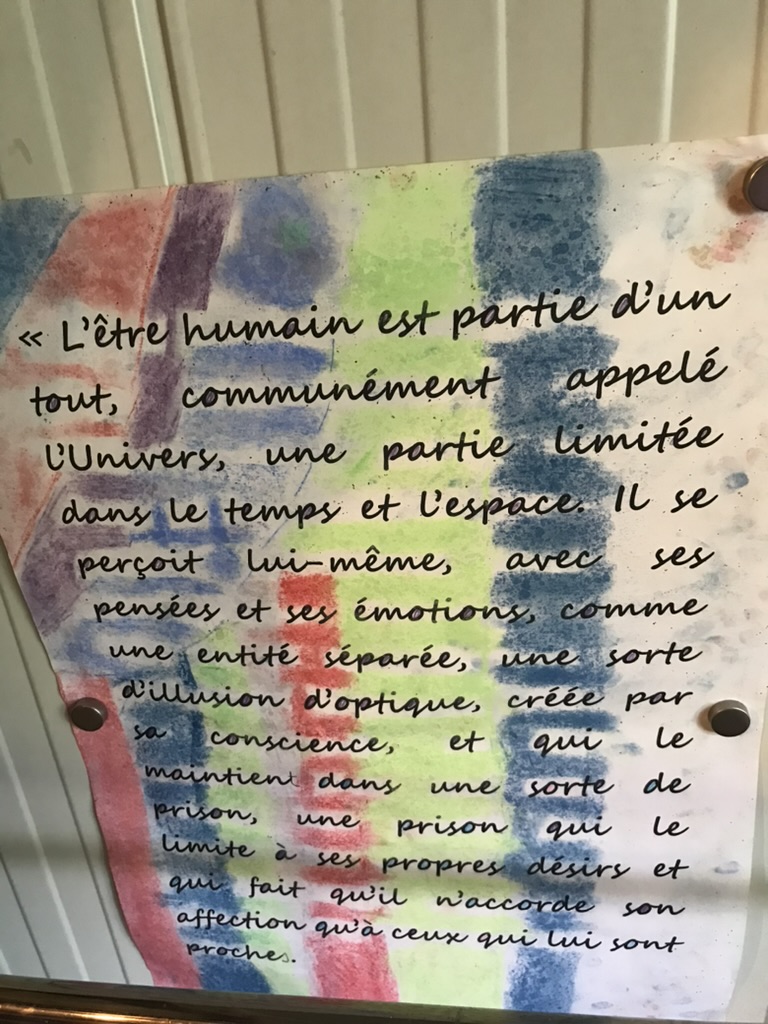 « L'être humain est partie d'un
tout, communément appelé
l'Univers, une partie limitée
dans le temps et l'espace. Il se
perçoit lui-même, avec ses
pensées et ses émotions, comme
une entité séparée, une sorte
d'illusion d'optique, créée par
sa conscience, et qui le
maintient dans une sorte de
prison, une prison qui le
limite à ses propres désirs et
qui fait qu'il n'accorde son
affection qu'à ceux qui lui sont
proches.